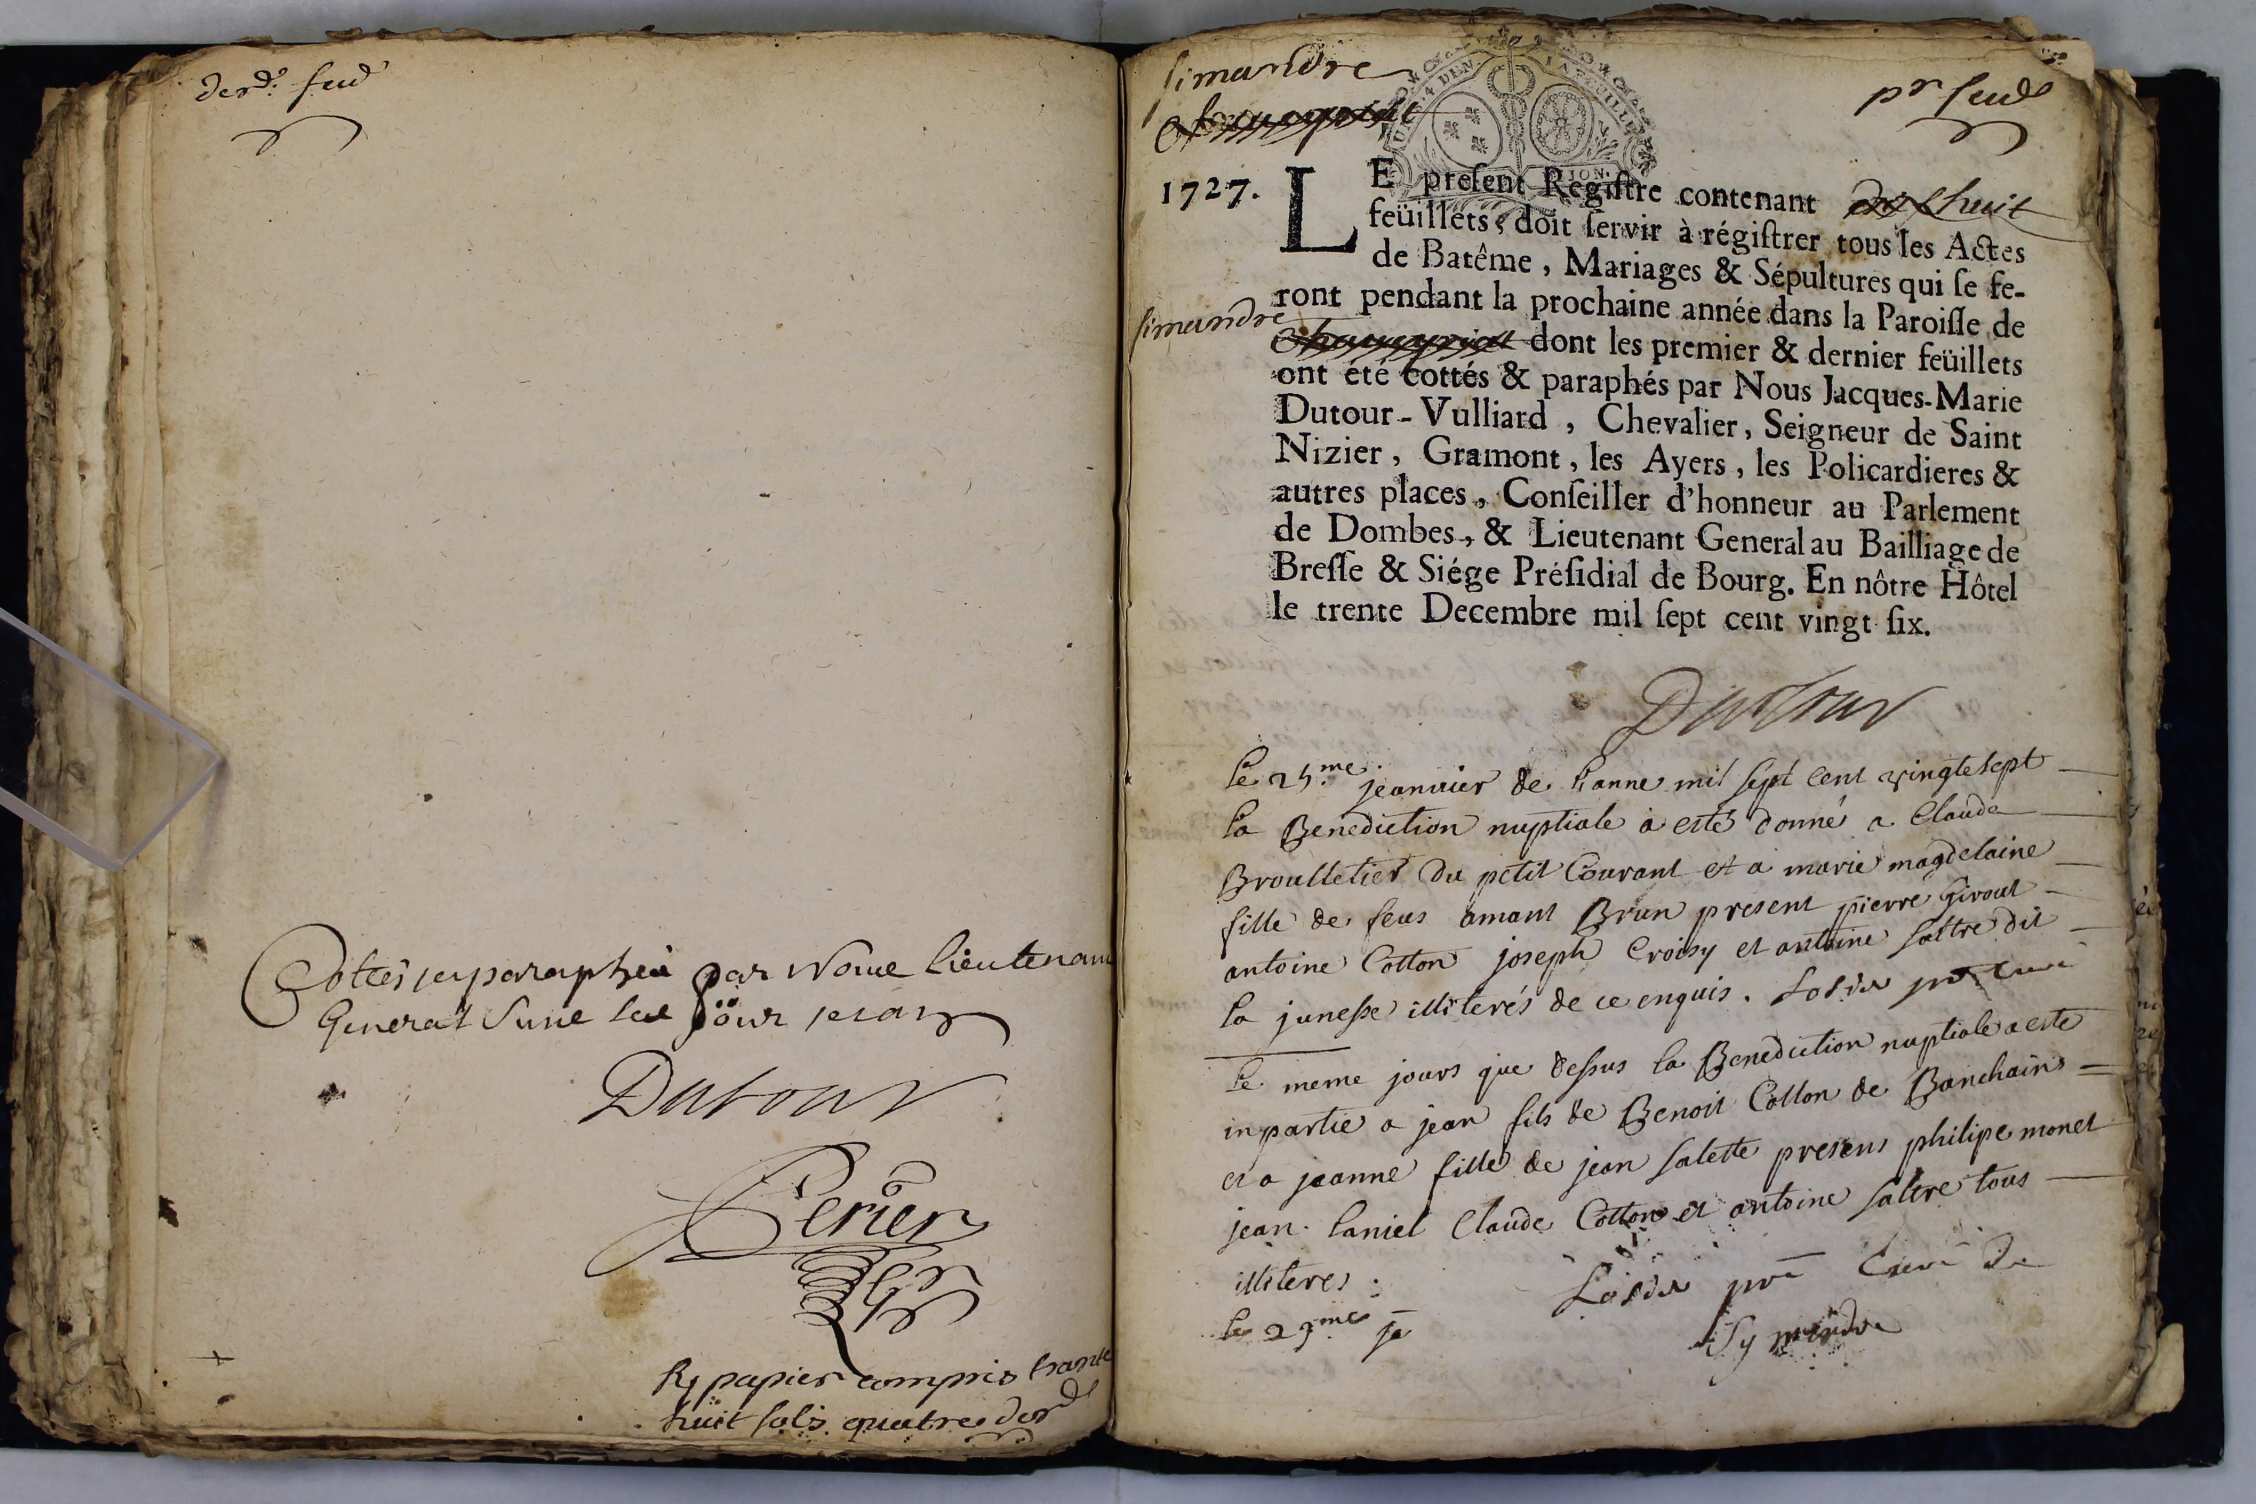 der.
Cottés et paraphés par Nous Lieutenant
General
Dutour
Perier
papier compris trante
huit sols quatre der
simandre
pr
UN. 4 DEN. LA FEUILLE
1727.
LE preſent Regiſtre contenant huit
feüillets, doit ſervir à régiſtrer tous les Actes
de Batême, Mariages & Sépultures qui ſe fe-
ront pendant la prochaine année dans la Paroiſſe de
simandre
dont les premier & dernier feüillets
ont été cottés & paraphés par Nous Jacques-Marie
Dutour-Vulliard, Chevalier, Seigneur de Saint
Nizier, Gramont, les Ayers, les Policardieres &
autres places, Conſeiller d'honneur au Parlement
de Dombes, & Lieutenant General au Bailliage de
Breſſe & Siége Préſidial de Bourg. En nôtre Hôtel
le trente Decembre mil ſept cent vingt ſix.
Dutour
jeanvier de lanne mil sept cent vingtesept
la Benediction nuptiale a esté donné a Claude
Broulletier du petit Courant et a marie magdelaine
fille de feus amant Brun present pierre Girout
antoine Cotton joseph Croisy et antoine saltre dit
la junesse illiterés de ce enquis.
le meme jours que dessus la Benediction nuptiale a este
inpartie a jean fils de Benoit Cotton de Banchains
et a jeanne fille de jean salette presens philipe monet
jean laniel Claude Cotton et antoine saltre tous
illiteres
le
Symandre